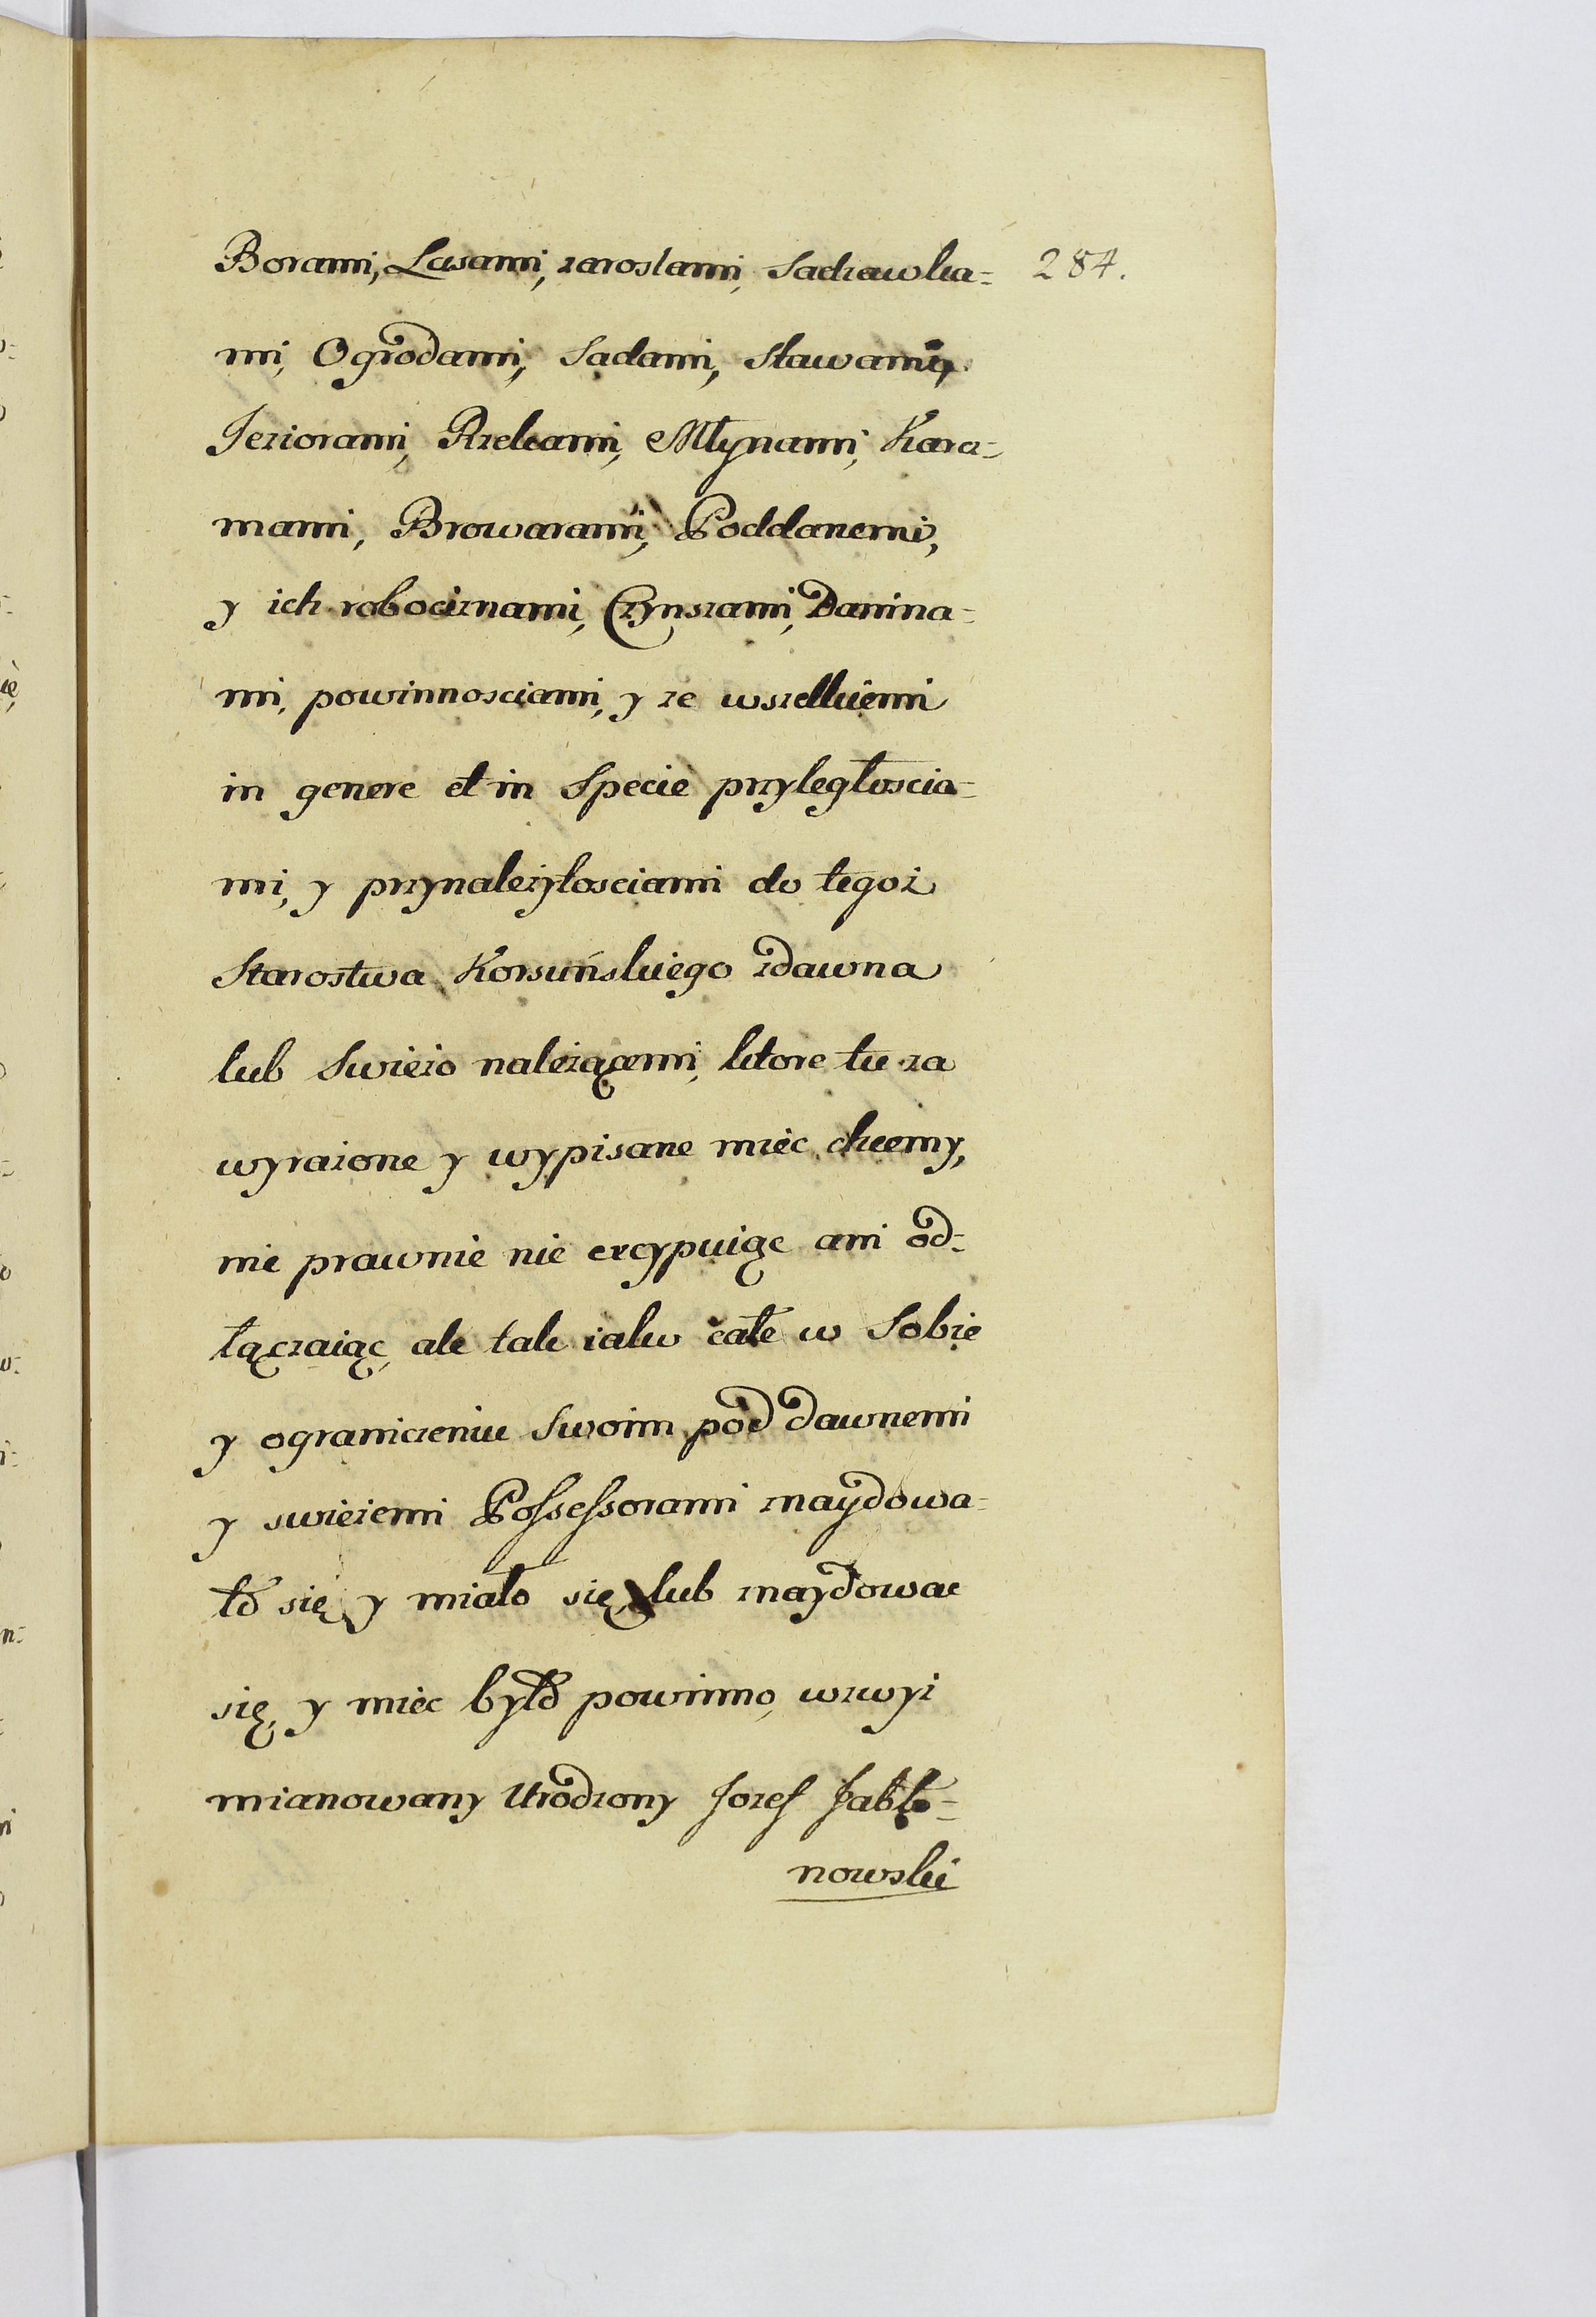 Borami, Lasami, zaroslami, Sadzawka= 287.
mi, Ogrodami, Sadami, Stawami,
Jeziorami, Rzekami, Młynami, Karcz=
mami, Browarami, Poddanemi,
y ich robociznami, Czynszami, Danina=
mi, powinnosciami, y ze wszelkiemi
in genere et in Specie przyległoscia=
mi, y przynależytosciami do tegoż
Starostwa Korsuńskiego zdawna
lub Swieżo należącemi, ktore tu za
wyrażone y wypisane miec chcemy,
nie prawnie nie excypuiąc ani od=
łączaiąc, ale tak iako całe w Sobie
y ograniczeniu Swoim pod dawnemi
y swieżemi Possessorami znaydowa=
ło się y miało się, lub znaydowac
się, y miec było powinno, wzwyż
mianowany Urodzony Jozef Jabło=
nowski